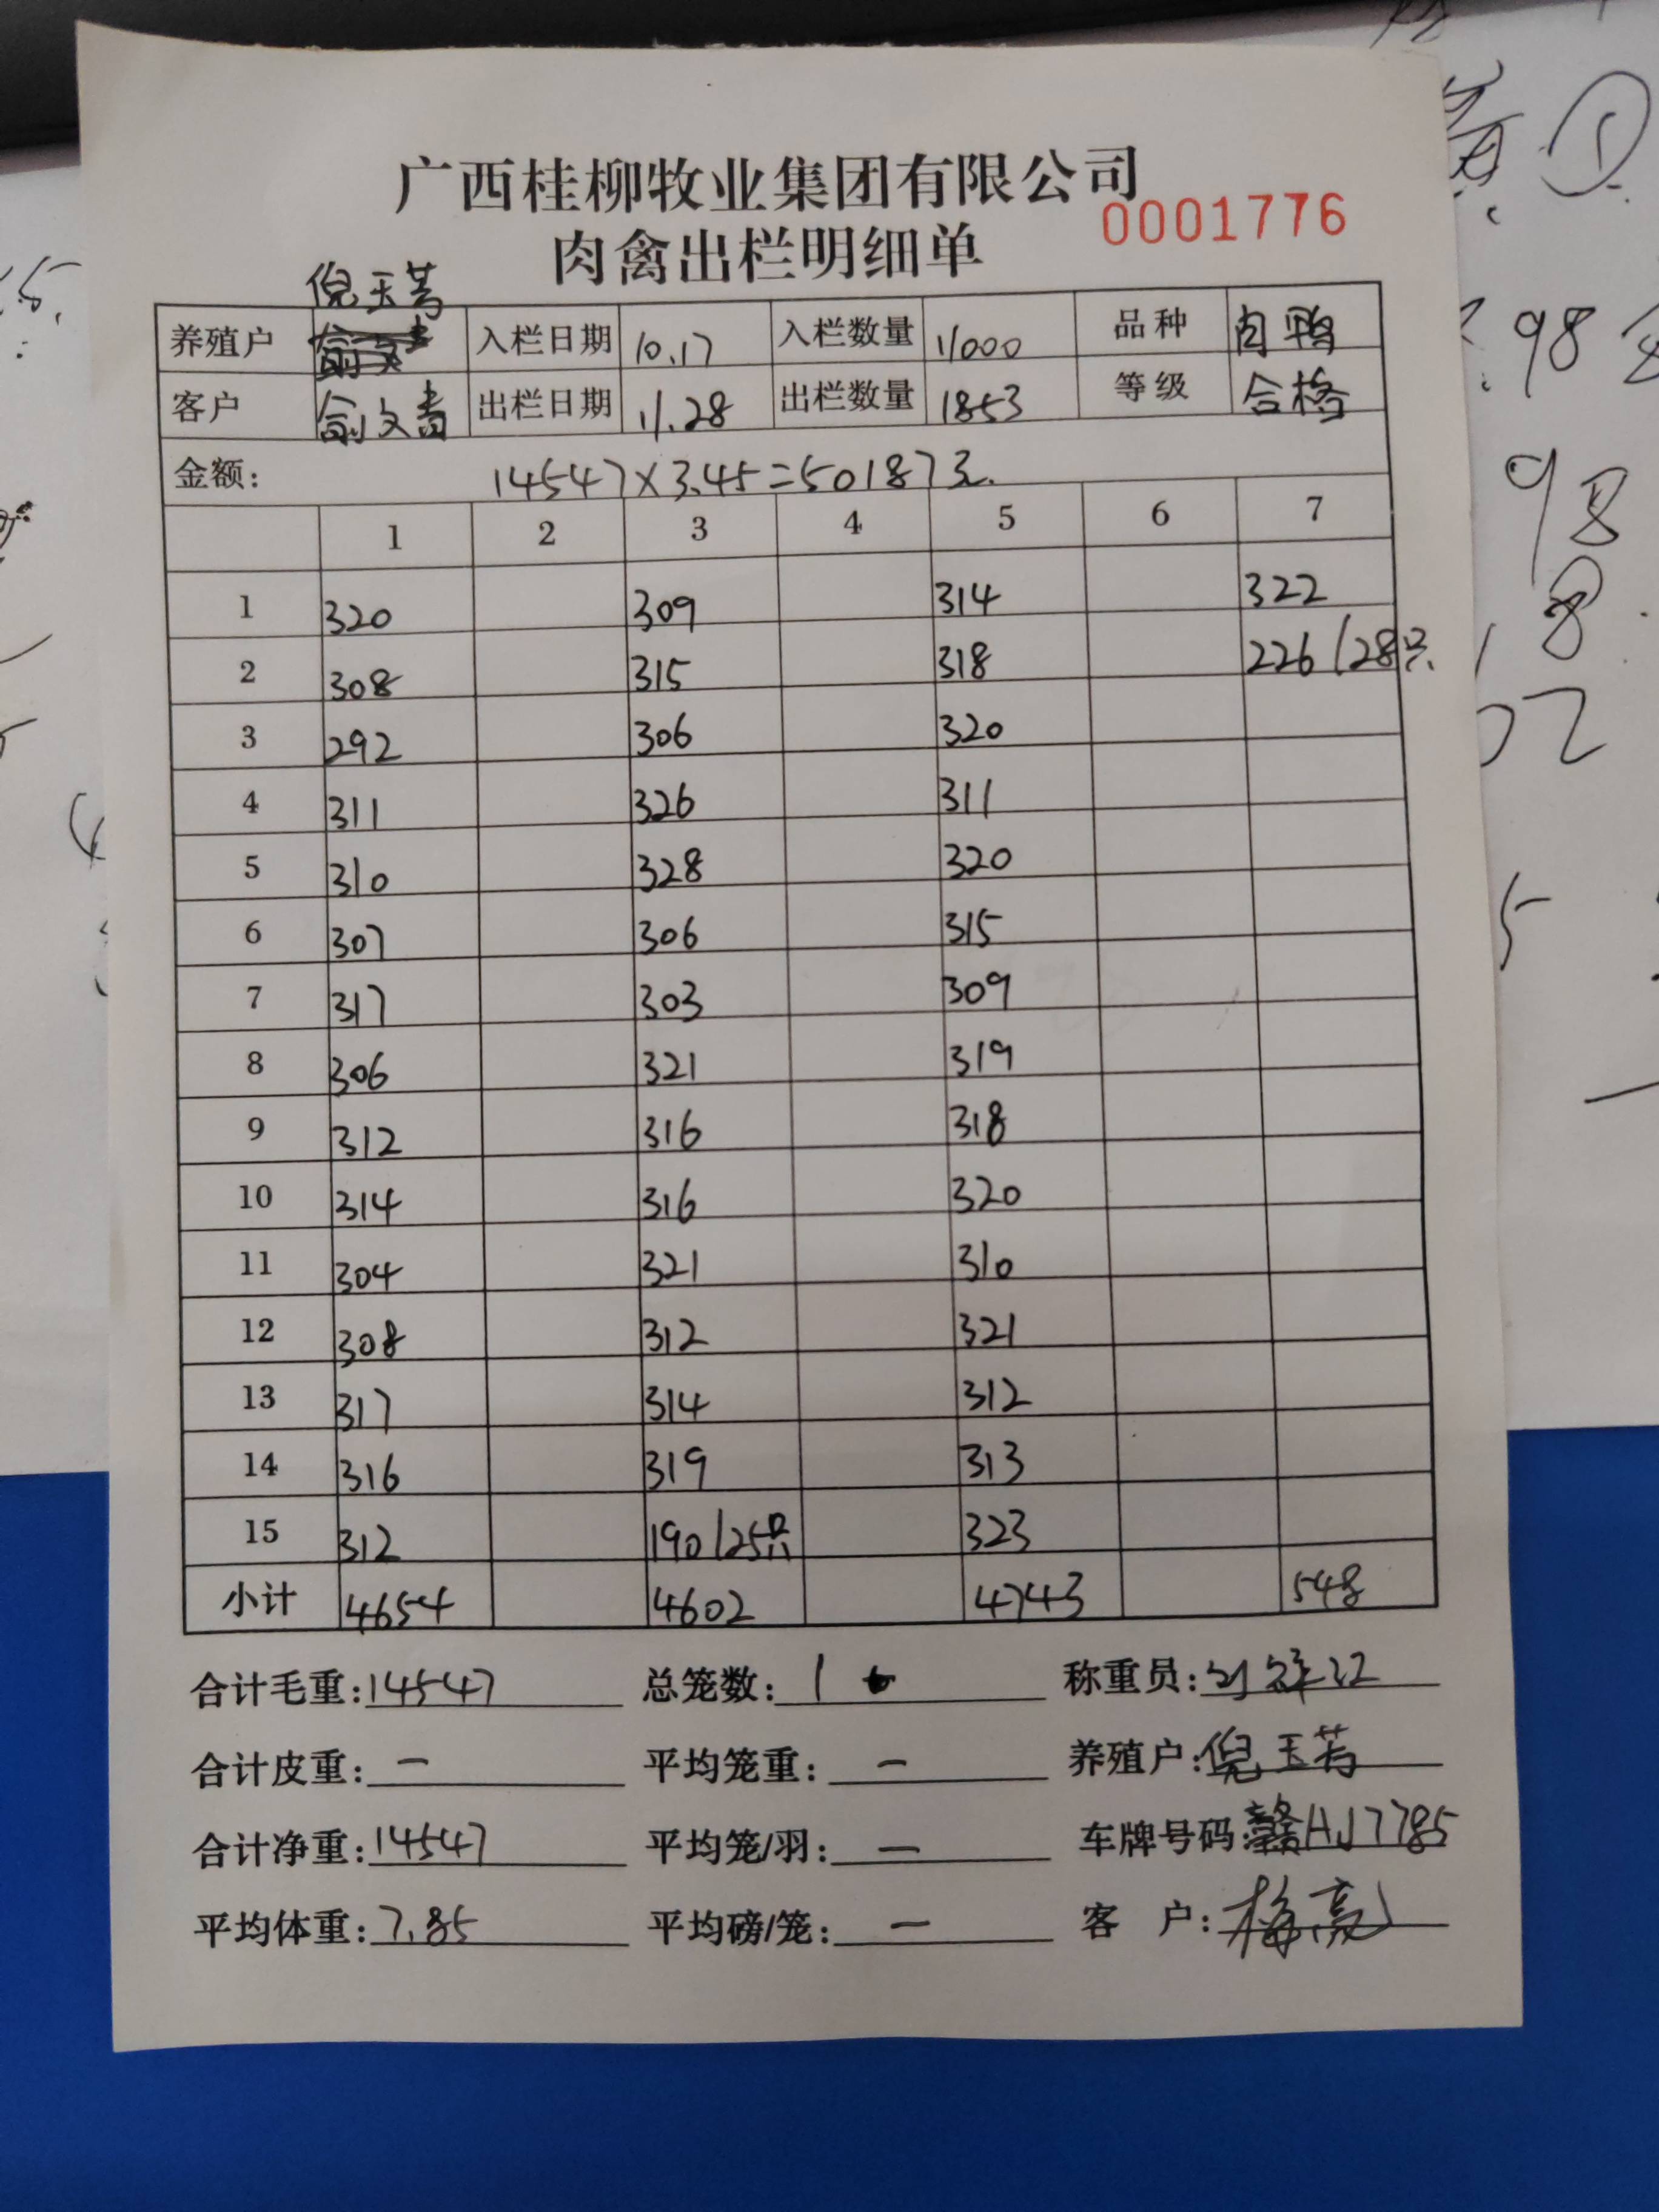 广西桂柳牧业集团有限公司
0001776
肉禽出栏明细单
倪玉芳
养殖户 入栏日期 10.17 入栏数量 11000 品种 肉鸭
客户 俞文青 出栏日期 11.28 出栏数量 1853 等级 合格
金额: 14547×3.45=50187元.
1 2 3 4 5 6 7
1 320 309 314 322
2 308 315 318 226/28只.
3 292 306 320
4 311 326 311
5 310 328 320
6 307 306 315
7 317 303 309
8 306 321 319
9 312 316 318
10 314 316 320
11 304 321 310
12 308 312 321
13 317 314 312
14 316 319 313
15 312 190/25只 323
小计 4654 4602 4743 548
合计毛重:14547 总笼数:1 称重员:
合计皮重:一 平均笼重:一 养殖户:倪玉芳
合计净重:14547 平均笼/羽:一 车牌号码:赣HJ7785
平均体重:7.85 平均磅/笼:一 客 户:梅亮